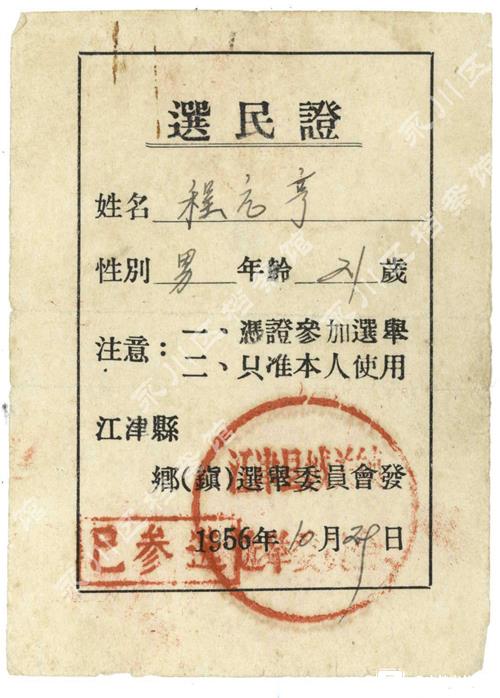 選民證
姓名 程元亨
性別 男 年齡 21 歲
注意：一、憑證參加選舉
二、只准本人使用
江津縣
鄉(鎮)選舉委員會發
1956年10月29日
已参选
江津县城关镇
选举委员会
永川区档案馆